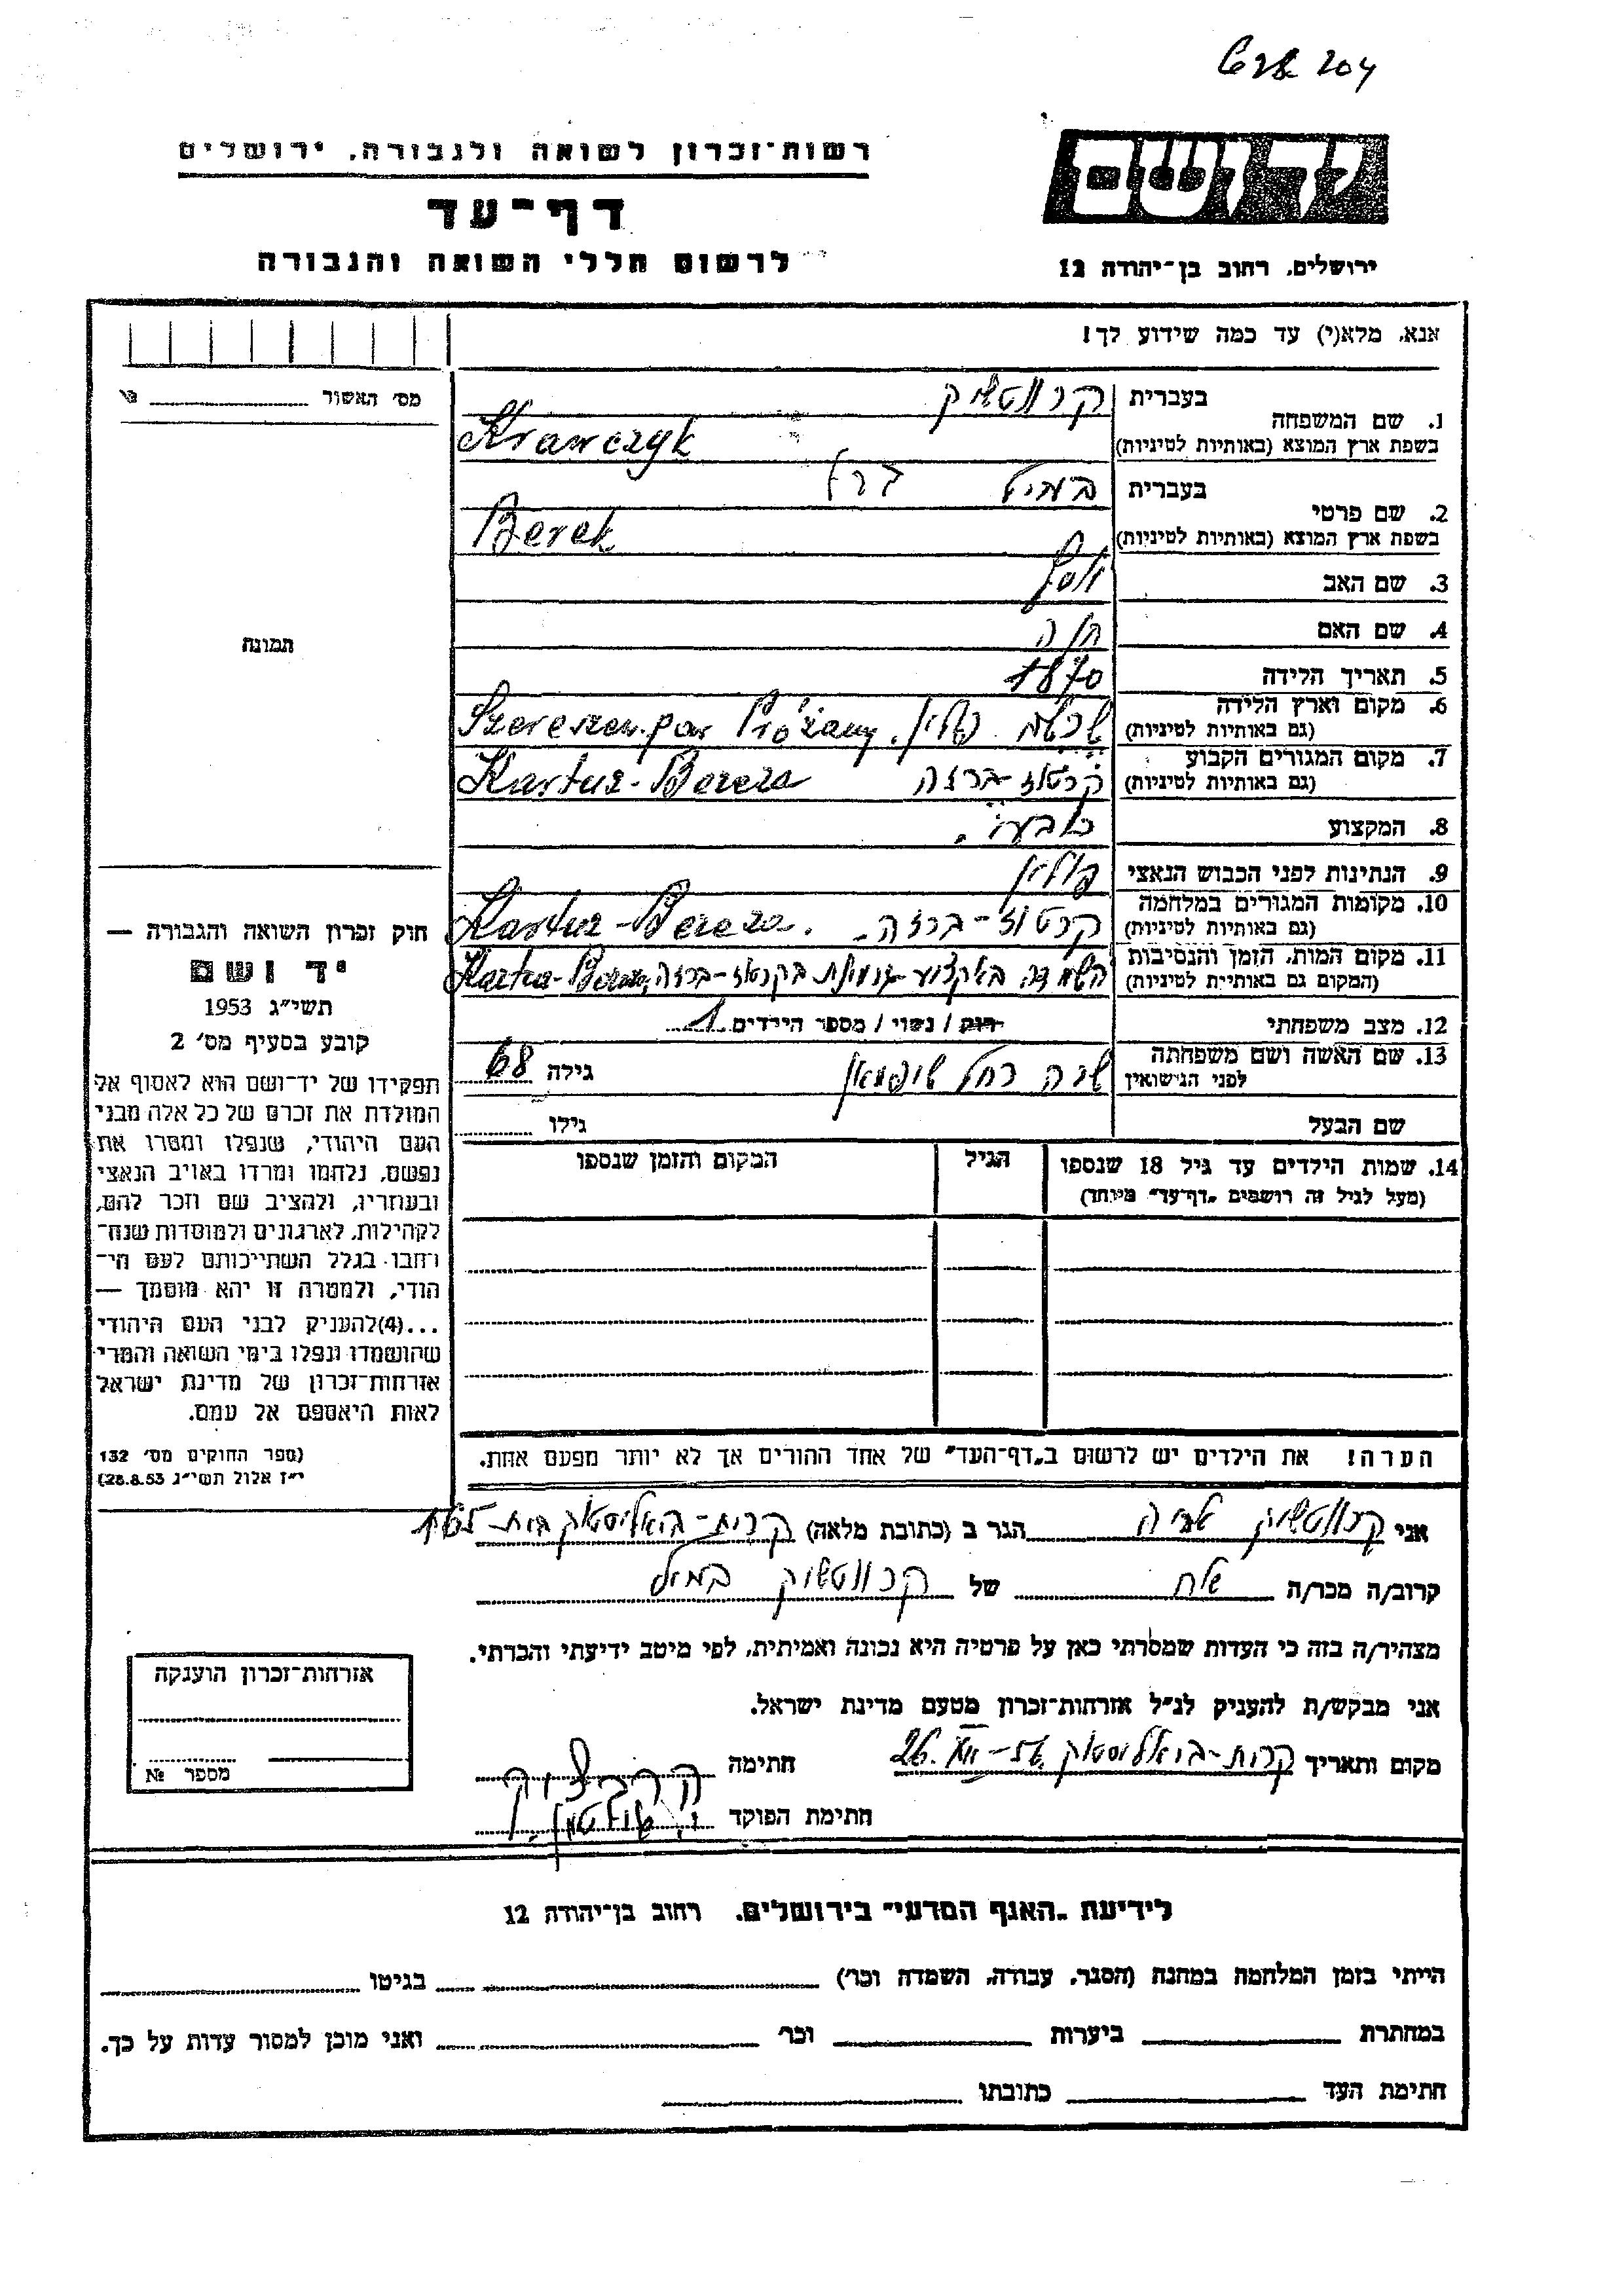 204
רשות-זכרון לשואה ולגבורה, ירושלים
דף-עד
לרשום חללי השואה והגבורה
יד ושם
ירושלים, רחוב בן-יהודה 12
אנא, מלא(י) עד כמה שידוע לך!
מס' האשור
תמונה
1. שם המשפחה
בעברית
קרווטשיק
בשפת ארץ המוצא (באותיות לטיניות)
Krawczyk
2. שם פרטי
בעברית
ברל
בשפת ארץ המוצא (באותיות לטיניות)
Berek
3. שם האב יוסף
4. שם האם חיה
5. תאריך הלידה 1870
6. מקום וארץ הלידה
(גם באותיות לטיניות)
פולין. Szereszew. pow Prużany
7. מקום המגורים הקבוע
(גם באותיות לטיניות)
קרטוז-ברזה Kartuz-Bereza
8. המקצוע
9. הנתינות לפני הכבוש הנאצי פולין
10. מקומות המגורים במלחמה
(גם באותיות לטיניות)
קרטוז-ברזה. Kartuz-Bereza.
11. מקום המות, הזמן והנסיבות
(המקום גם באותיית לטיניות)
בקרטוז-ברזה, Kartuz-Bereza
12. מצב משפחתי רווק / נשוי / מספר הילדים 1
13. שם האשה ושם משפחתה
לפני הנישואין
שרה רחל גילה 68
שם הבעל גילו
14. שמות הילדים עד גיל 18 שנספו הגיל המקום והזמן שנספו
(מעל לגיל זה רושמים "דף-עד" מיוחד)
הערה! את הילדים יש לרשום ב"דף-העד" של אחד ההורים אך לא יותר מפעם אחת.
חוק זכרון השואה והגבורה —
יד ושם
תשי"ג 1953
קובע בסעיף מס' 2
תפקידו של יד-ושם הוא לאסוף אל
המולדת את זכרם של כל אלה מבני
העם היהודי, שנפלו ומסרו את
נפשם, נלחמו ומרדו באויב הנאצי
ובעוזריו, ולהציב שם וזכר להם,
לקהילות, לארגונים ולמוסדות שנח-
רחבו בגלל השתייכותם לעם הי-
הודי, ולמטרה זו יהא מוסמך —
...(4)להעניק לבני העם היהודי
שהושמדו ונפלו בימי השואה והמרי
אזרחות-זכרון של מדינת ישראל
לאות היאספם אל עמם.
(ספר החוקים מס' 132
י"ז אלול תשי"ג 28.8.53)
אני קרווטשיק הגר ב (כתובת מלאה) קרית-ביאליסטוק
קרוב/ה מכר/ה של קרווטשיק
מצהיר/ה בזה כי העדות שמסרתי כאן על פרטיה היא נכונה ואמיתית, לפי מיטב ידיעתי והכרתי.
אני מבקש/ת להעניק לנ"ל אזרחות-זכרון מטעם מדינת ישראל.
מקום ותאריך קרית-ביאליסטוק 26. חתימה
חתימת הפוקד
אזרחות-זכרון הוענקה
מספר №
לידיעת "האגף המדעי" בירושלים, רחוב בן-יהודה 12
הייתי בזמן המלחמה במחנה (הסגר, עבודה, השמדה וכו') בגיטו
במחתרת ביערות וכו' ואני מוכן למסור עדות על כך.
חתימת העד כתובתו